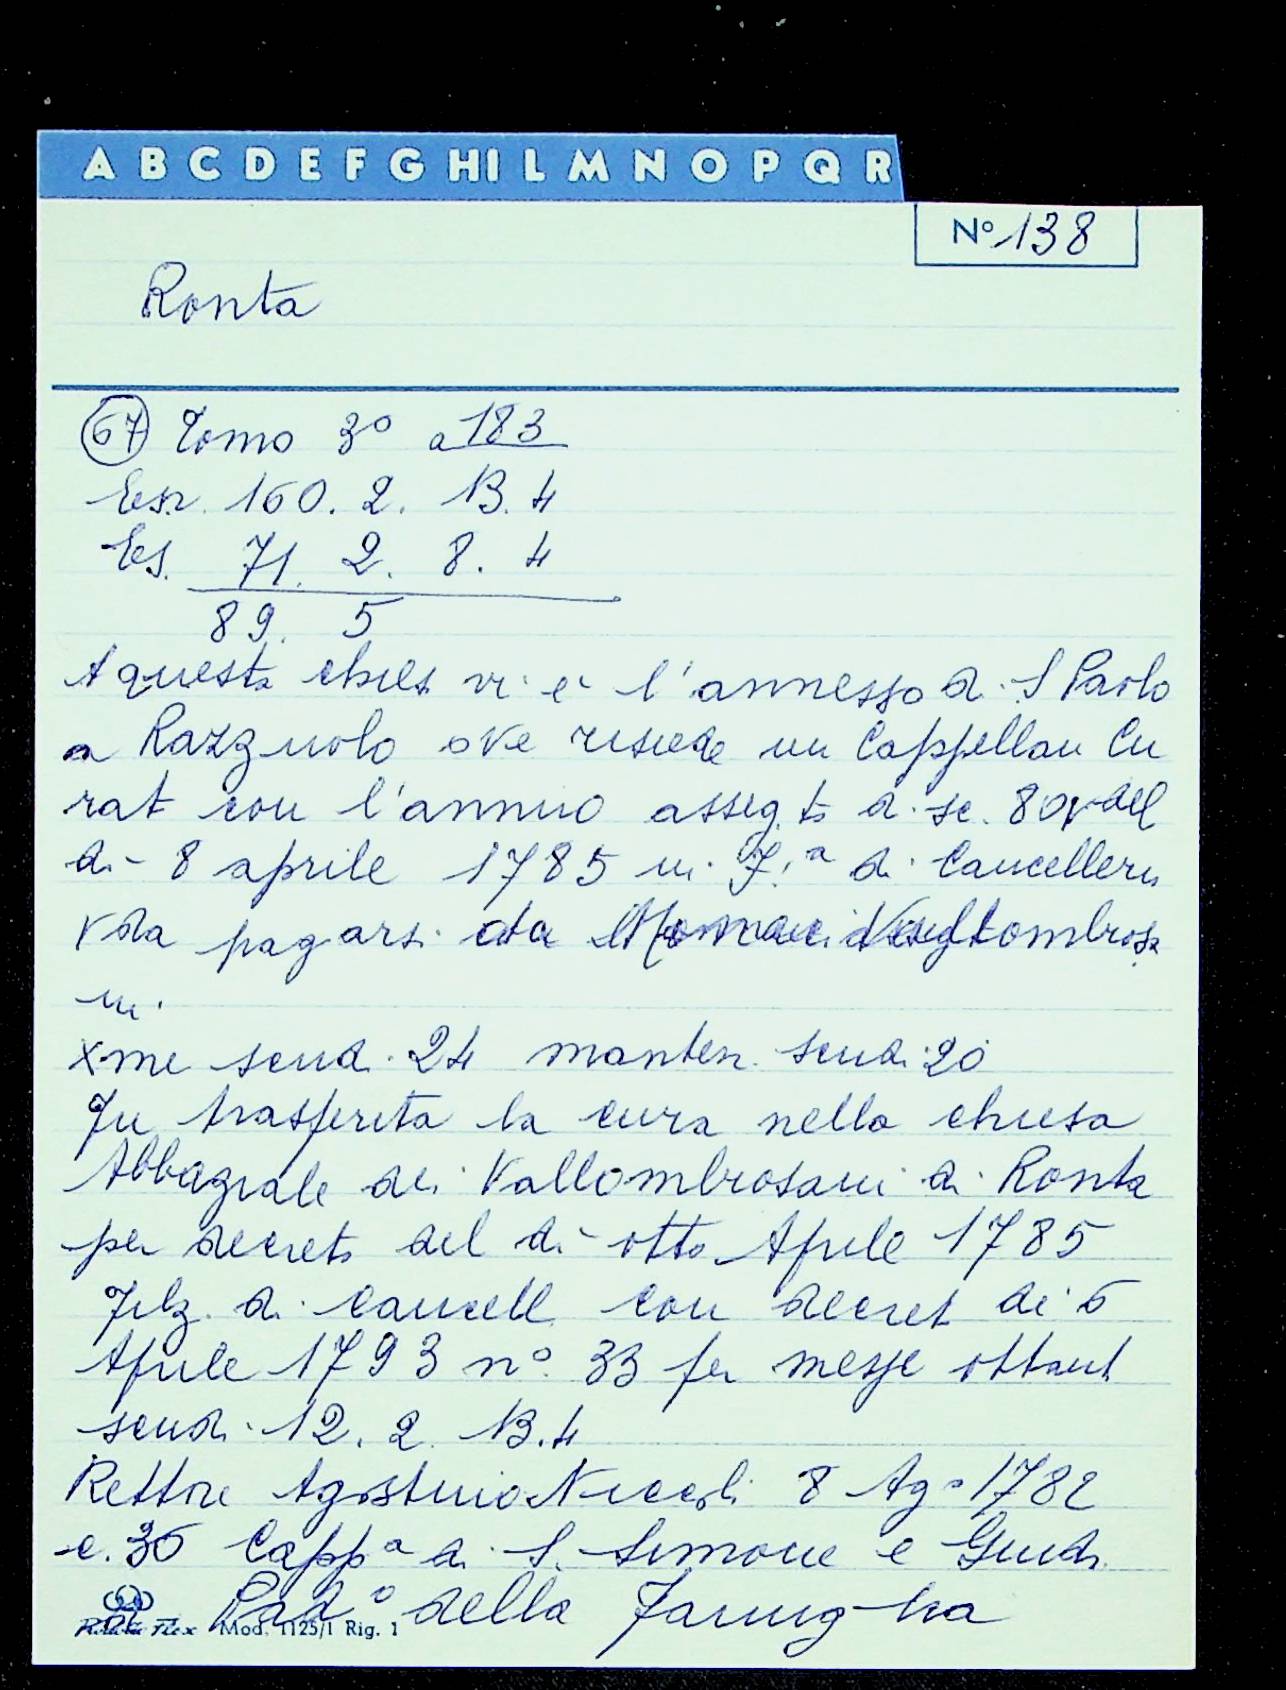 A B C D E F G HI L M N O P Q R
Nº 138
Ronta
67 Tomo 3º a 183
Esr. 160. 2. 13. 4
Es. 71. 2. 8. 4
89. 5
A questa chies vi e' l'annesso di S Paolo
a Razzuolo ove risiede un Cappellan Cu
rat con l'annuo asseg.to di sc. 80 del
di 8 aprile 1785 in F.a di Cancelleria
da pagarsi da Monaci Vallombrosa
ni.
Xme scudi 24 manten. scudi 20
Fu trasferita la cura nella chiesa
Abbaziale dei Vallombrosani di Ronta
per decreto del di otto Aprile 1785
Filz. di Cancell con decret di 6
Aprile 1793 nº 33 per messe ottant
scudi 12. 2 13. 4
Rettore Agostino Niccoli 8 Agº 1782
c. 36 Cappª di S. Simone e Giuda
Padº della Famiglia
Mod. 1125/1 Rig. 1